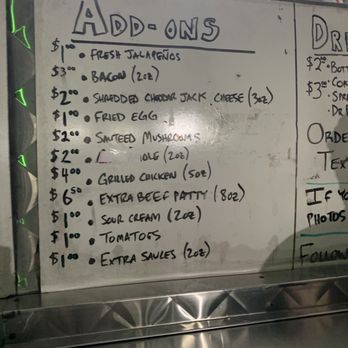 ADD-ONS
$1⁰⁰ • FRESH JALAPEÑOS
$3⁰⁰ • BACON (2oz)
$2⁰⁰ • SHREDDED CHEDDAR JACK CHEESE (3oz)
$1⁰⁰ • FRIED EGG
$2⁰⁰ • SAUTEED MUSHROOMS
$2⁰⁰ • (2oz)
$4⁰⁰ • GRILLED CHICKEN (5oz)
$6⁵⁰ • EXTRA BEEF PATTY (8oz)
$1⁰⁰ • SOUR CREAM (2oz)
$1⁰⁰ • TOMATOES
$1⁰⁰ • EXTRA SAUCES (2oz)
DRI
$2⁰⁰ • BOTT
$3⁰⁰ • COK
• SPR
• DR P
ORDE
TEX
IF YO
PHOTOS
FOLLOW